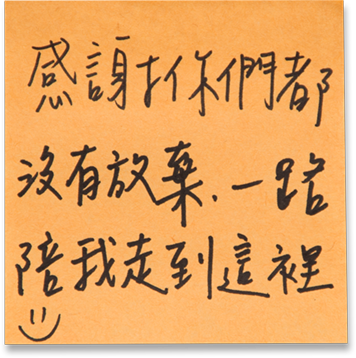 感謝扌你們都
沒有放棄.一路
陪我走到這裡